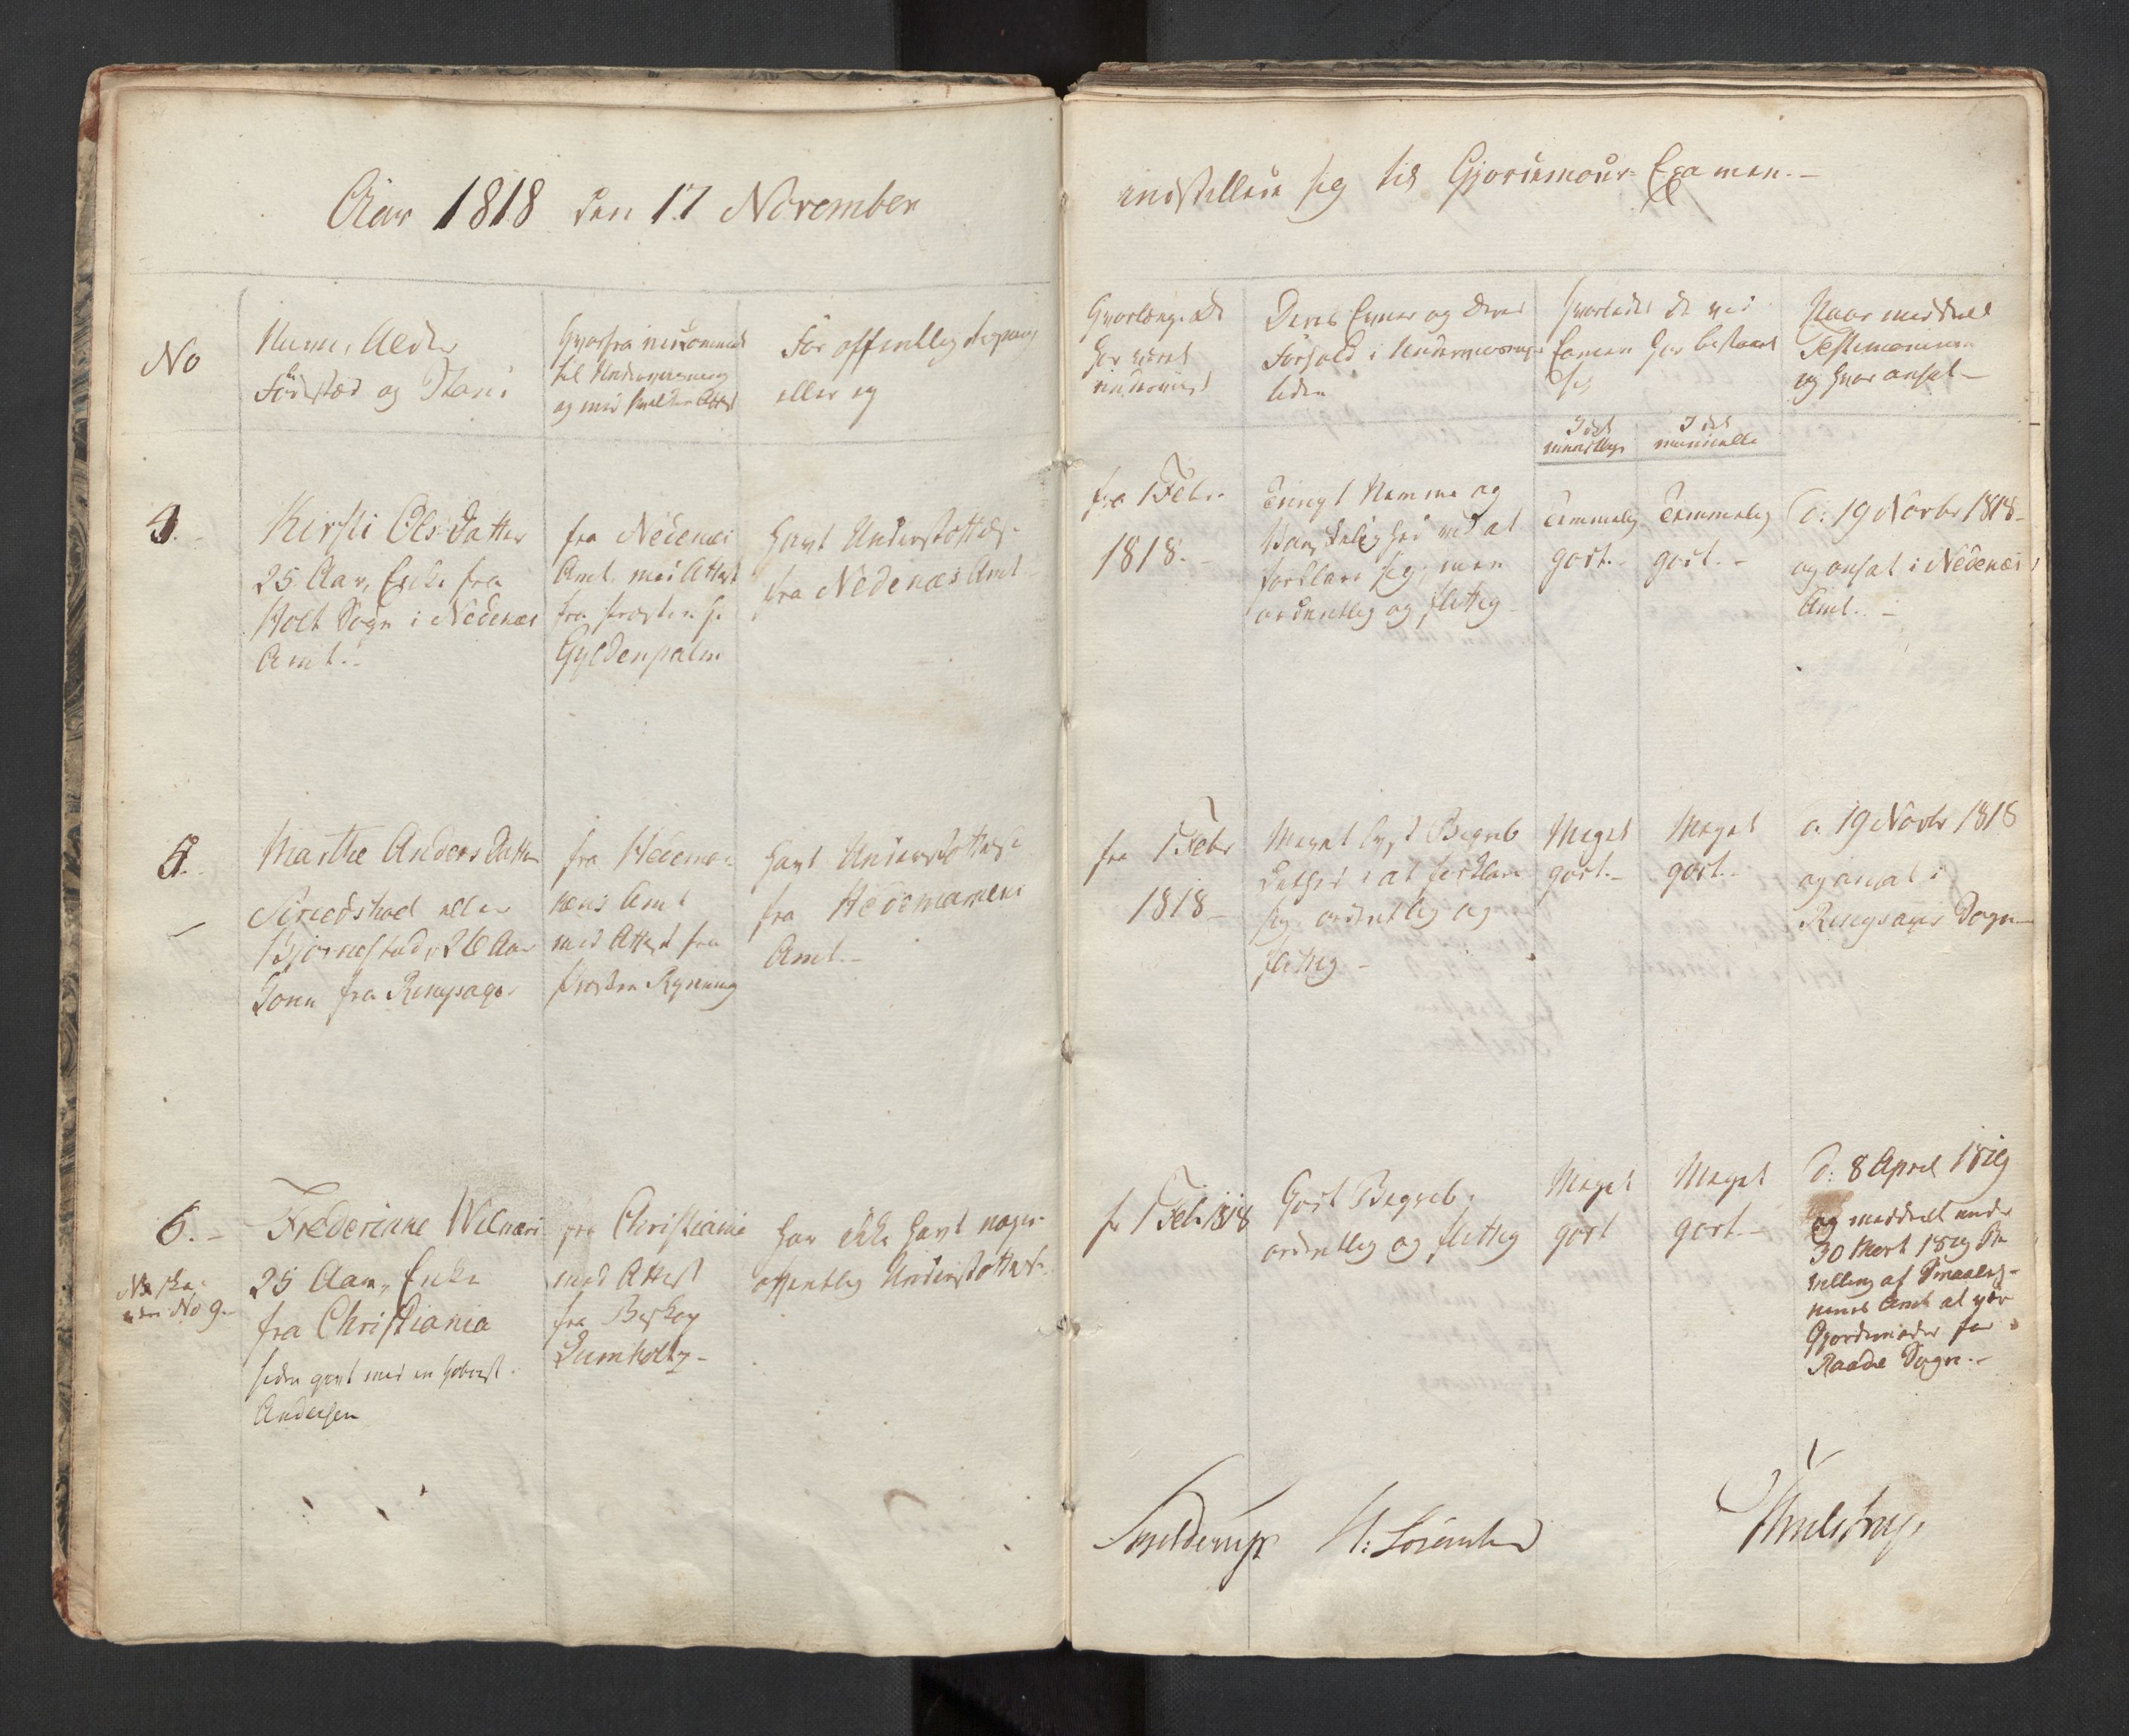 Aar 1818 den 17 November
indstillede sig til Gjordemoder-Examen.-
No
Navn, Alder
Fødested og Stand
Hvorfra ankommed
til Underviisning
og med hvilken Attest
For offentlig Regning
eller ej
Hvorlænge de
har været
underviist
Deres Evner og deres
Forhold i Underviisnings
tiden
hvorledes de ved
Examen har bestaaet
sig
I det
mundtlige
I det
manuelle
Naar meddeelt
Testimonium
og hvor ansat-
4.-
Kirsti Ols Datter
25 Aar, Enke fra
Holt Sogn i Nedenæs
Amt.-
fra Nedenæs
Amt med Attest
fra Præsten Hr
Gyldenpalm
havt Understøttelse
fra Nedenæs Amt-
fra 1 Febr.
1818.-
Tungt Nemme og
Vanskelighed ved at
forklare sig, men
ordentlig og flittig
Temmelig
godt.-
Temmelig
godt.-
d: 19 Novbr 1818-
og ansat i Nedenæs
Amt.-
5.-
Marthe Anders Datter
eller
Bjørnestad, 26 Aar
Kone fra Ringsager
fra Hedemar-
kens Amt
med Attest fra
Præsten Rynning
havt Understøttelse
fra Hedemarkens
Amt.-
fra 1 Febr
1818-
Meget lyst Begreb
Lethed i at forklare
sig ordentlig og
flittig-
Meget
godt.-
Meget
godt.-
d. 19 Novbr 1818
og ansat i
Ringsager Sogn-
6.-
No 9.-
Frederikke Wilnæs
25 Aar, Enke
fra Christiania
siden givt med en
Andersen
fra Christiania
med Attest
fra Biskop
Lumholtz-
har ikke havt nogen
offentlig Understøttelse.
fr 1 Febr 1818
Godt Begreb,
ordentlig og flittig
Meget
godt
Meget
godt.-
d: 8 April 1819
og meddeelt under
30 Mart 1819 Be
stilling af Smaaleh-
nenes Amt at være
Gjordemoder for
Raade Sogn.-
Skjelderup
N: Sørenssen
Thulstrup.